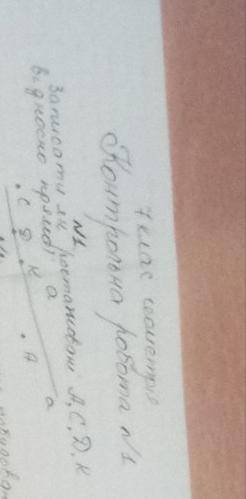 7 клас геометрія
Контрольна робота №1
№1
Записати як розташовані A, C, D, K
відносно прямої a
C D K
A
a